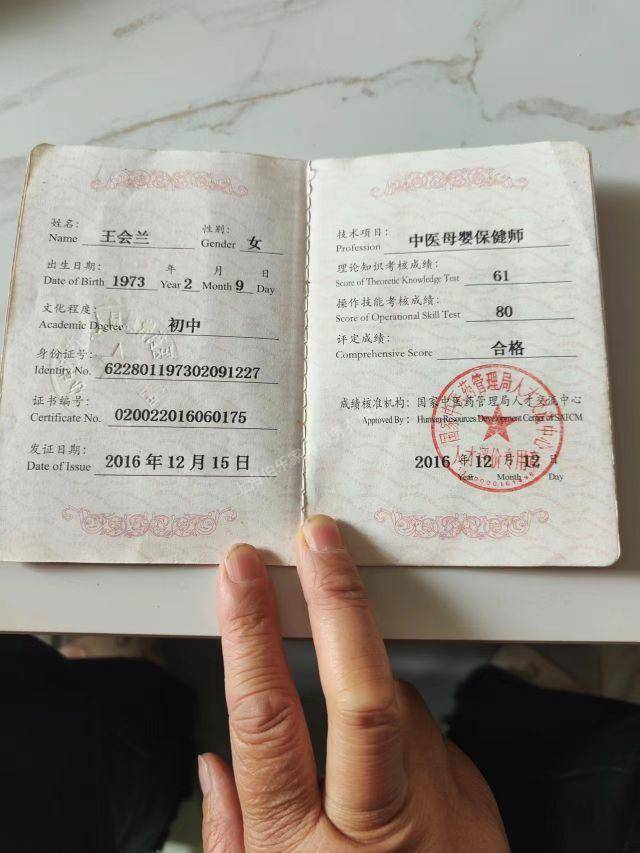 姓名： 王会兰 性别： 女
Name Gender
出生日期： 年 月 日
Date of Birth 1973 Year 2 Month 9 Day
文化程度：
Academic Degree 初中
身份证号：
Identity No. 622801197302091227
证书编号：
Certificate No. 020022016060175
发证日期：
Date of Issue 2016 年 12 月 15 日
技术项目：
Profession 中医母婴保健师
理论知识考核成绩：
Score of Theoretic Knowledge Test 61
操作技能考核成绩：
Score of Operational Skill Test 80
评定成绩：
Comprehensive Score 合格
成绩核准机构： 国家中医药管理局人才交流中心
Approved by : Human Resources Development Center of SATCM
国家中医药管理局人才交流中心
人才评价专用章
2016 年 12 月 12 日
Year Month Day